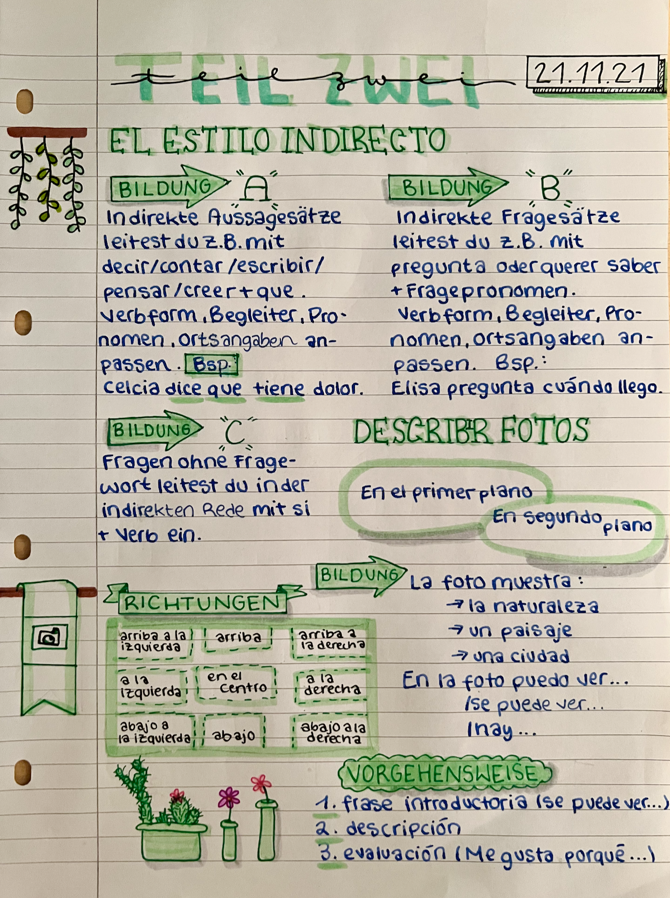 TEIL ZWEI
teil zwei
21.11.21
EL ESTILO INDIRECTO
BILDUNG "A"
Indirekte Aussagesätze
leitest du z.B. mit
decir/contar/escribir/
pensar/creer+que.
Verbform, Begleiter, Pro-
nomen, Ortsangaben an-
passen. Bsp.:
Celcia dice que tiene dolor.
BILDUNG "B"
Indirekte Fragesätze
leitest du z.B. mit
pregunta oder querer saber
+ Fragepronomen.
Verbform, Begleiter, Pro-
nomen, Ortsangaben an-
passen. Bsp.:
Elisa pregunta cuándo llego.
BILDUNG "C"
Fragen ohne Frage-
wort leitest du in der
indirekten Rede mit si
+ Verb ein.
DESCRIBIR FOTOS
En el primer plano
En segundo plano
BILDUNG
La foto muestra:
→ la naturaleza
→ un paisaje
→ una ciudad
En la foto puedo ver...
/se puede ver...
/hay...
RICHTUNGEN
arriba a la
izquierda
arriba
arriba a
la derecha
a la
izquierda
en el
centro
a la
derecha
abajo a
la izquierda
abajo
abajo a la
derecha
VORGEHENSWEISE
1. frase introductoria (se puede ver...)
2. descripción
3. evaluación (Me gusta porqué...)